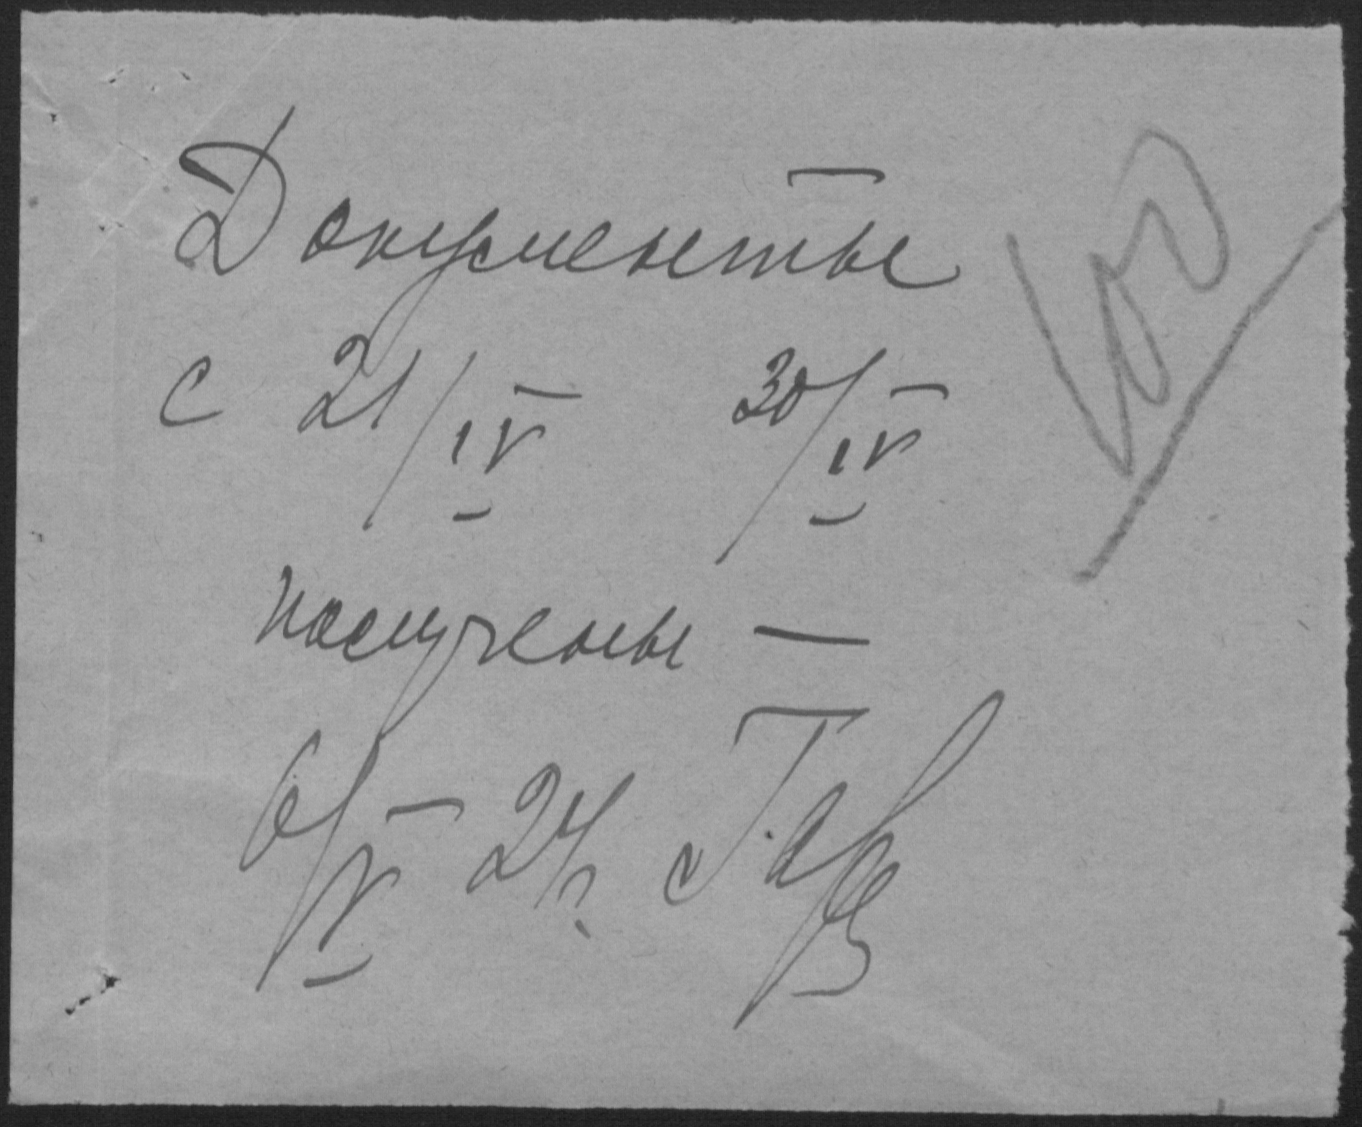 Документы
с 21/IV 30/IV
получены —
6/V 24 г.